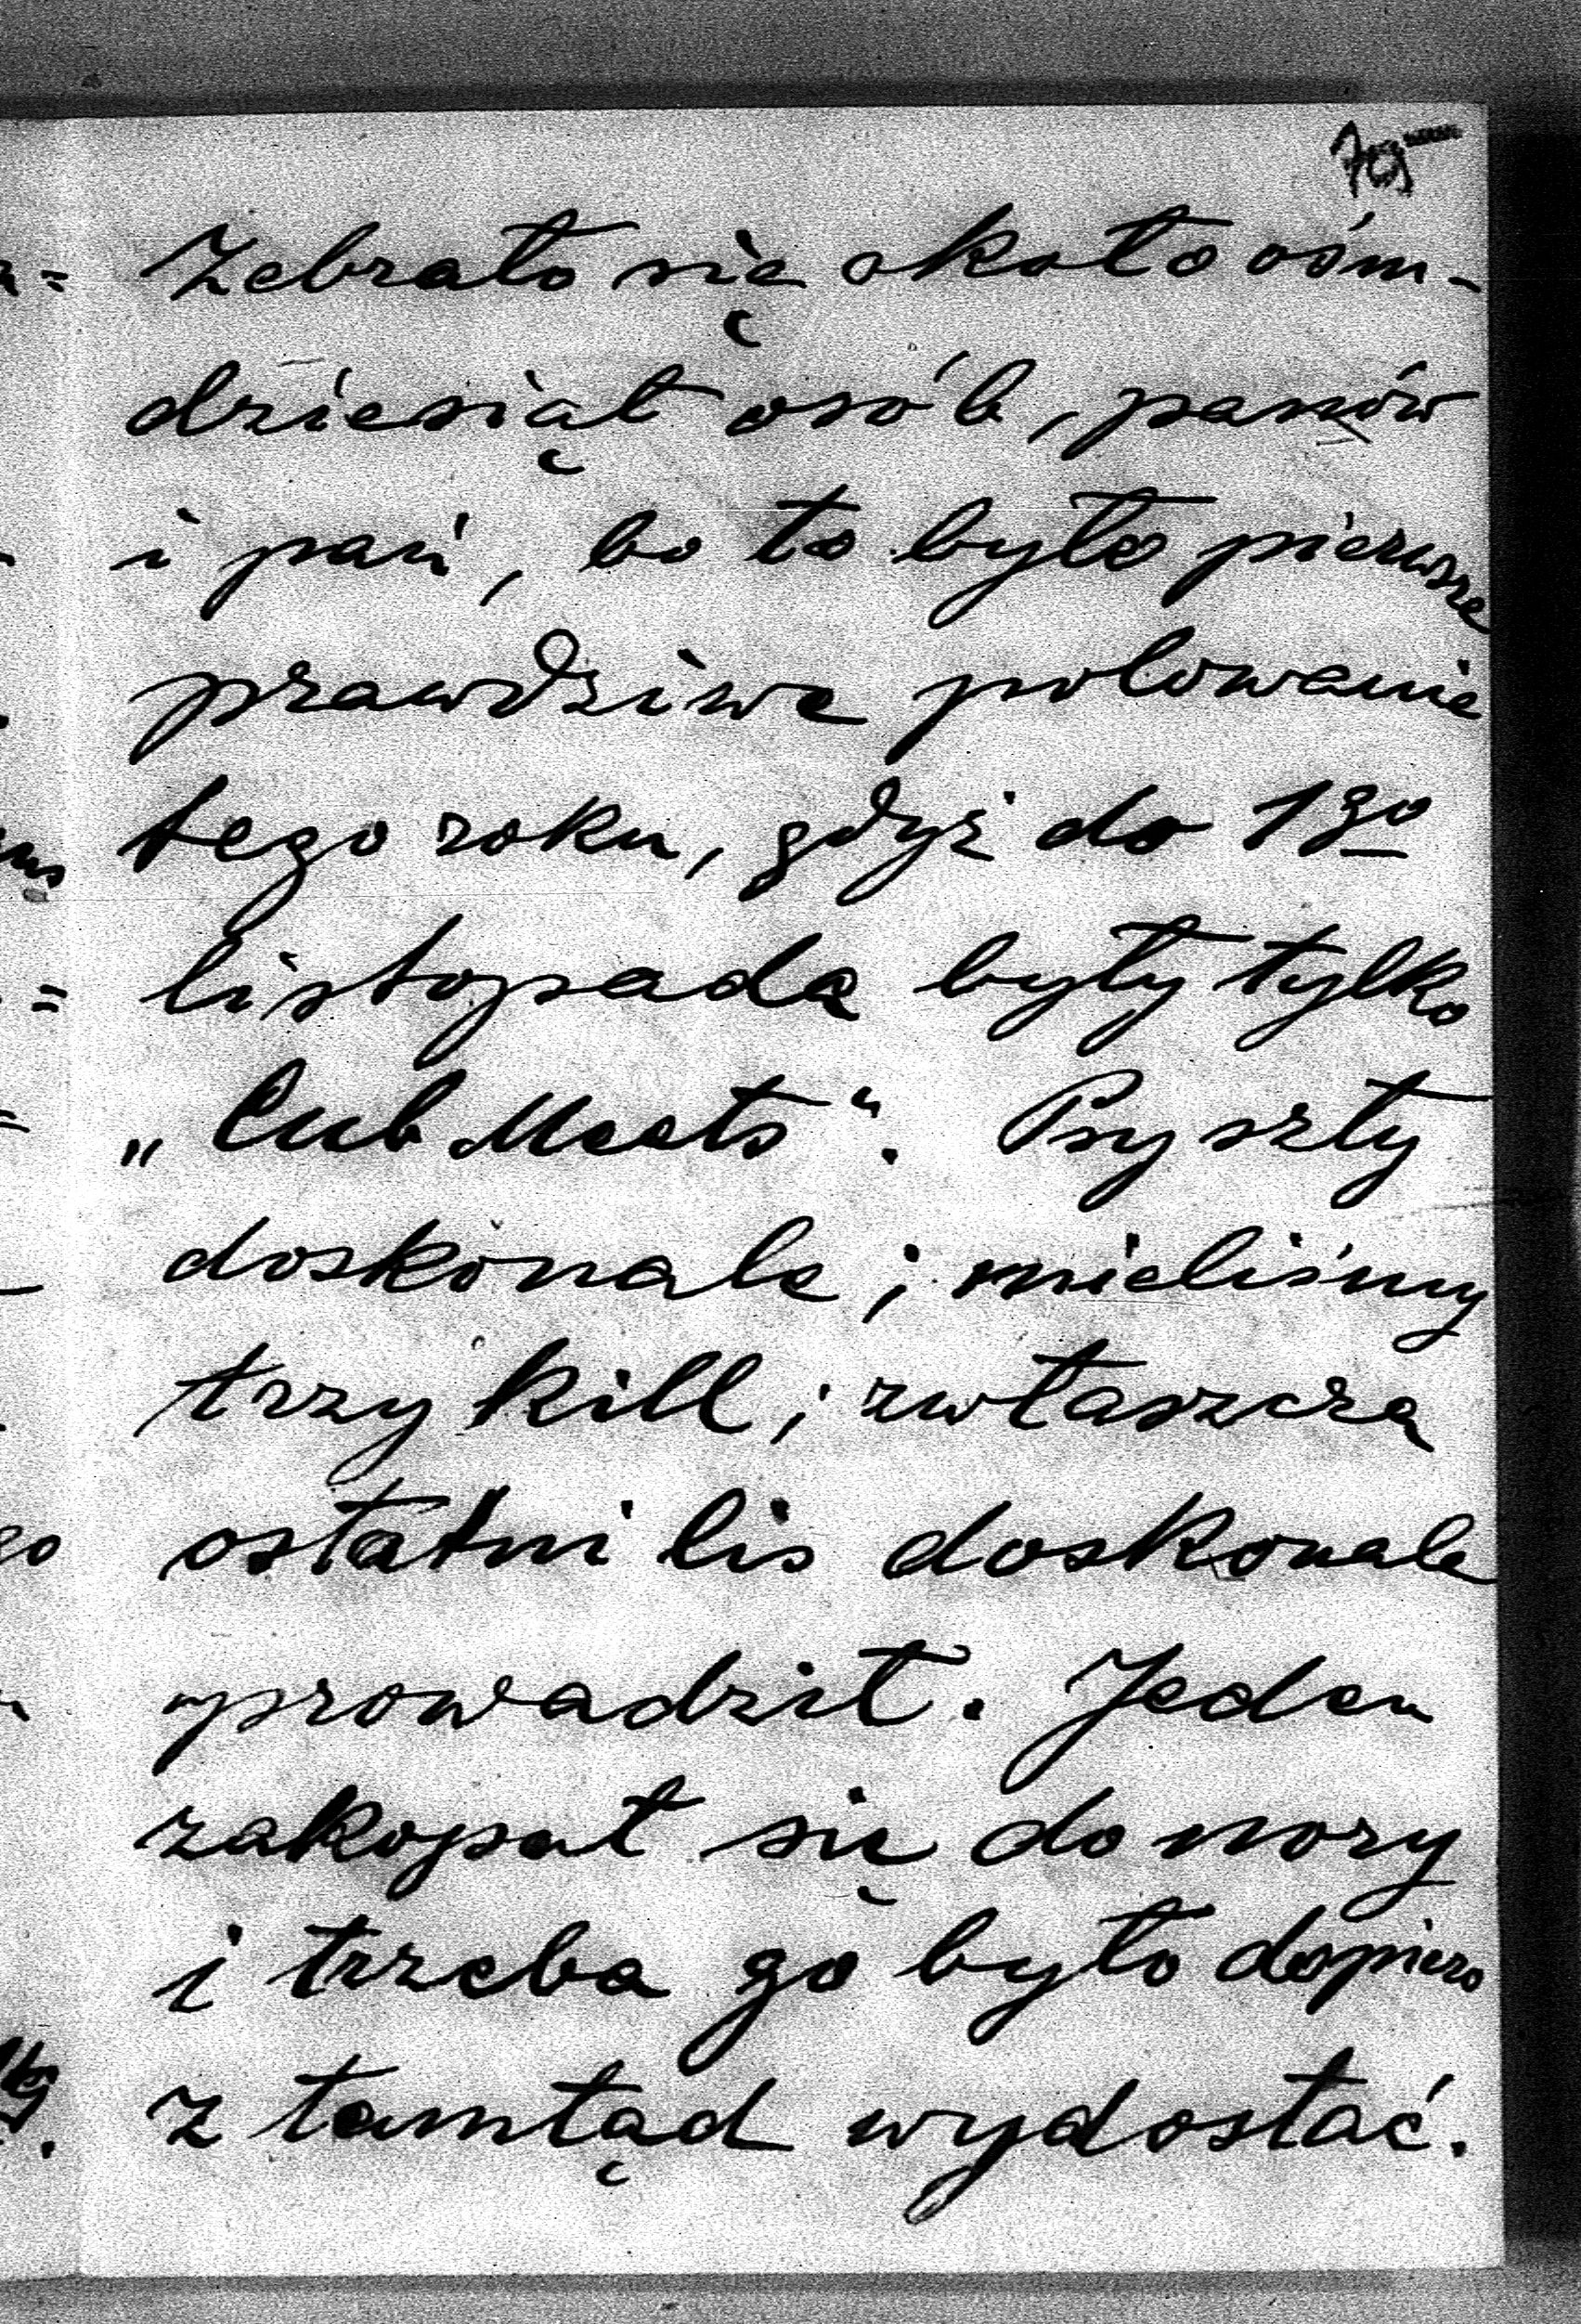 Zebrało się około ośm-
dziesiąt osób, panów
i pań, bo to było pierwsze
prawdziwe polowanie
tego roku, gdyż do 1go
listopada były tylko
„Cub Meets“. Psy szły
doskonale; mieliśmy
trzy kill; zwłaszcza
ostatni lis doskonale
prowadził. Jeden
zakopał się do nory
i trzeba go było dopiero
z tamtąd wydostać.